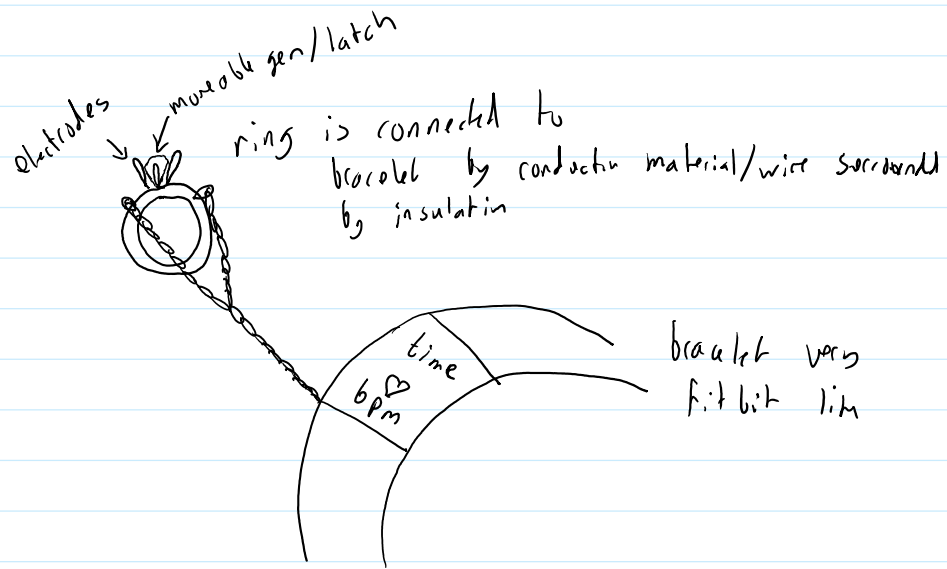 electrodes
moveable gem/latch
ring is connected to
bracelet by conductin material/wire surrounded
by insulatin
time
bpm
bracelet very
fitbit like